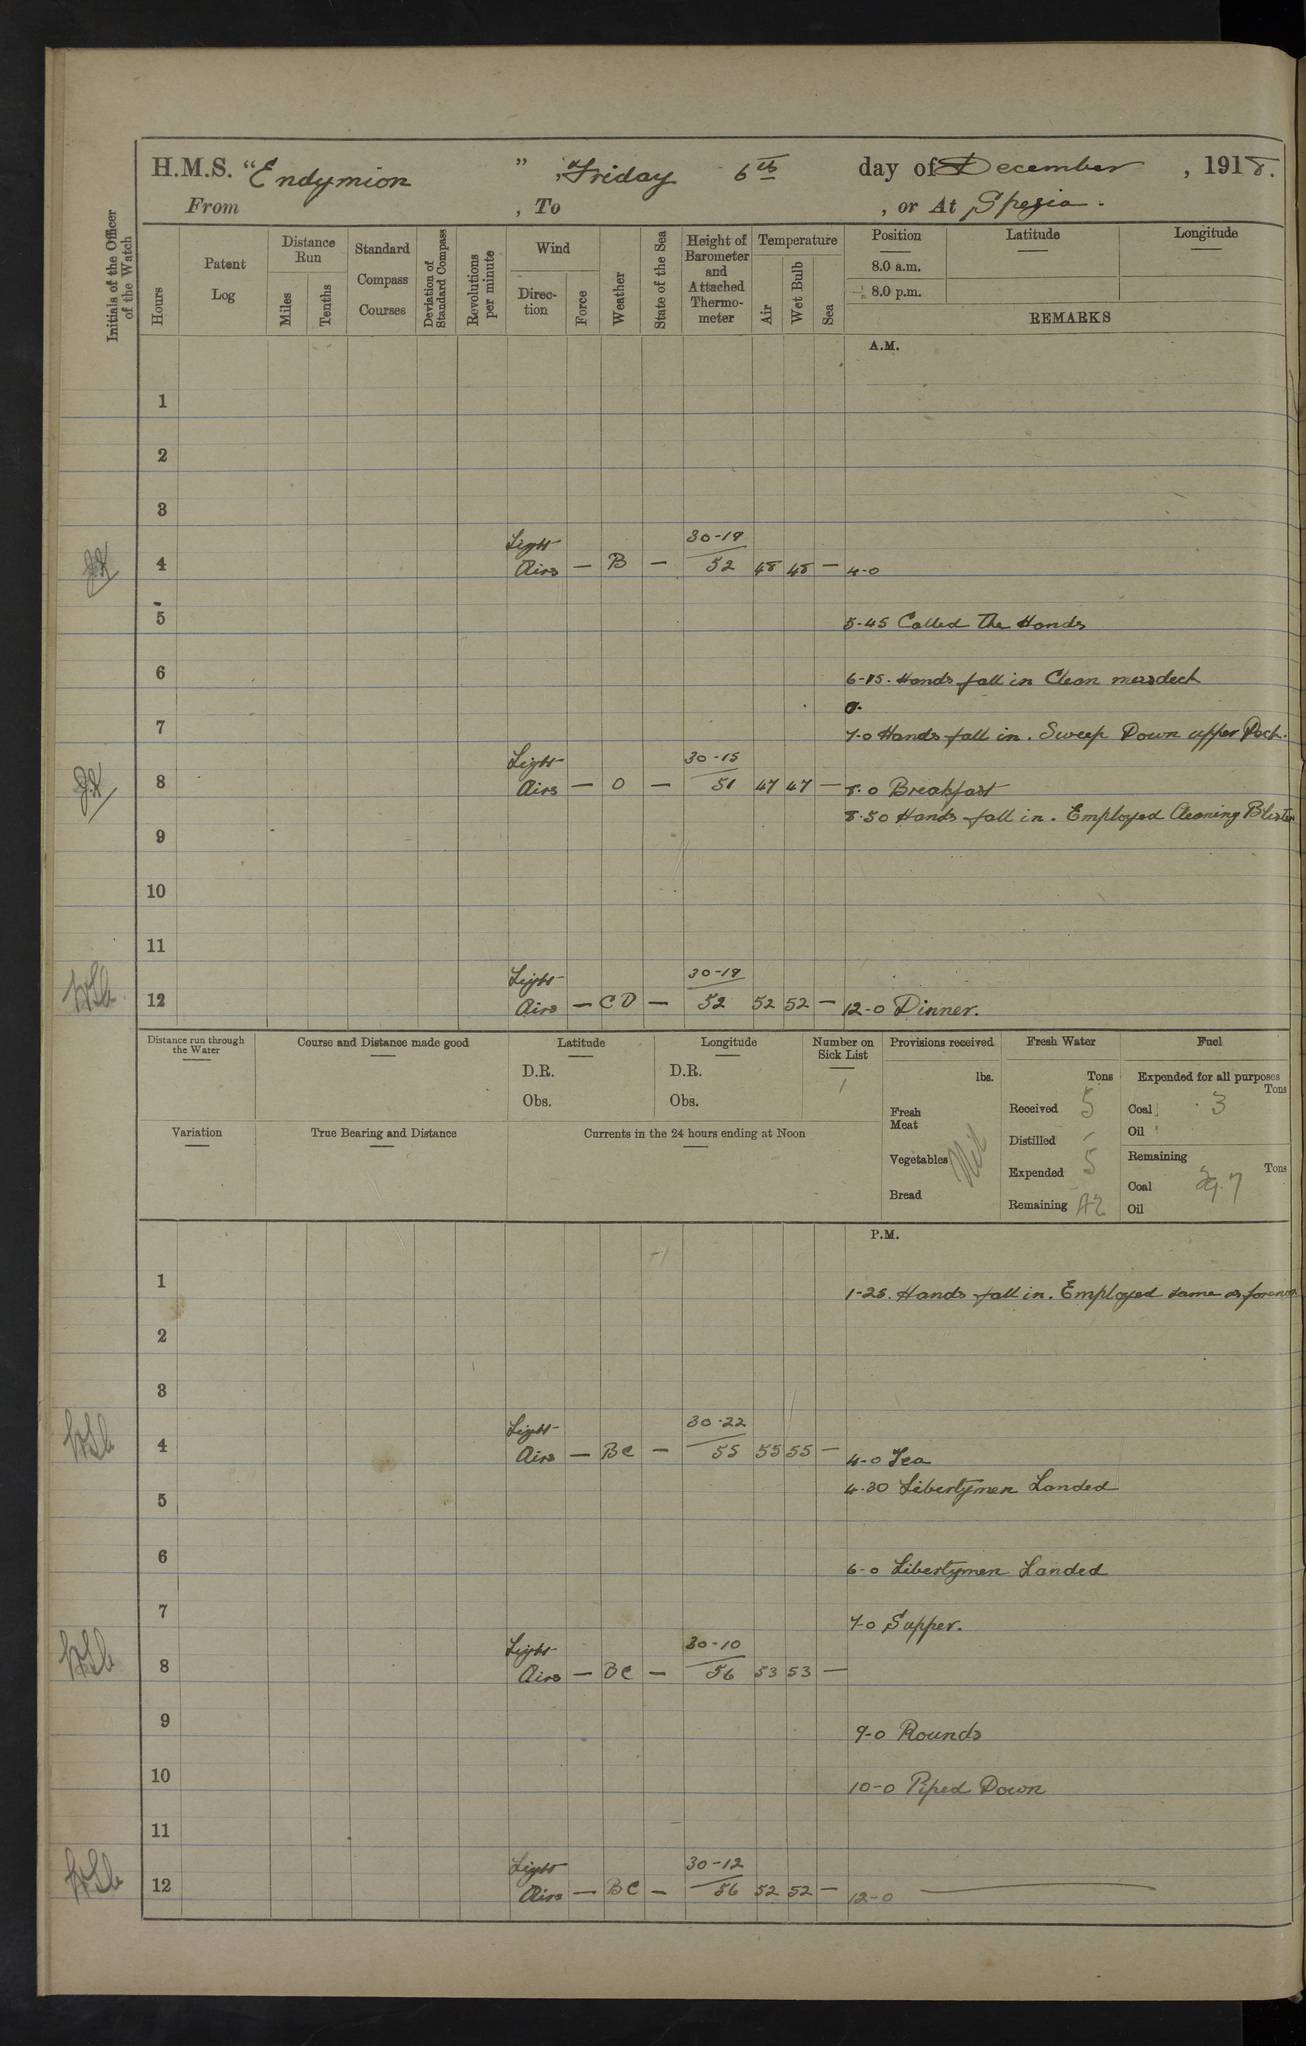 H.M.S. "Endymion", Friday 6th day of December, 1918.
From , To , or At Spezia.
Initials of the Officer of the Watch
Hours
Patent Log
Distance Run
Miles
Tenths
Standard Compass Courses
Deviation of Standard Compass
Revolutions per minute
Wind
Direc-tion
Force
Weather
State of the Sea
Height of Barometer and Attached Thermo-meter
Temperature
Air
Wet Bulb
Sea
Position Latitude Longitude
8.0 a.m.
8.0 p.m.
REMARKS
A.M.
1
2
3
Light 30-19
4 Airs — B — 52 48 48 — 4-0
5 5-45 Called The Hands
6 6-15. Hands fall in Clean messdeck
7 7-0 Hands fall in. Sweep Down upper Deck.
Light 30-15
8 Airs — O — 51 47 47 — 8-0 Breakfast
8-50 Hands fall in. Employed Cleaning
9
10
11
Light 30-19
12 Airs — C O — 52 52 52 — 12-0 Dinner.
Distance run through the Water
Course and Distance made good
Latitude
D.R.
Obs.
Longitude
D.R.
Obs.
Number on Sick List
Provisions received
lbs.
Fresh Meat
Vegetables Nil
Bread
Fresh Water
Tons
Received 5
Distilled
Expended 5
Remaining
Fuel
Expended for all purposes
Tons
Coal 3
Oil
Remaining
Tons
Coal
Oil
Variation
True Bearing and Distance
Currents in the 24 hours ending at Noon
P.M.
1 1-25. Hands fall in. Employed same as forenoon
2
3
Light 30-22
4 Airs — BC — 55 55 55 — 4-0 Tea
4-30 Libertymen Landed
5
6 6-0 Libertymen Landed
7 7-0 Supper.
Light 30-10
8 Airs — BC — 56 53 53 —
9 9-0 Rounds
10 10-0 Piped Down
11
Light 30-12
12 Airs — BC — 56 52 52 — 12-0